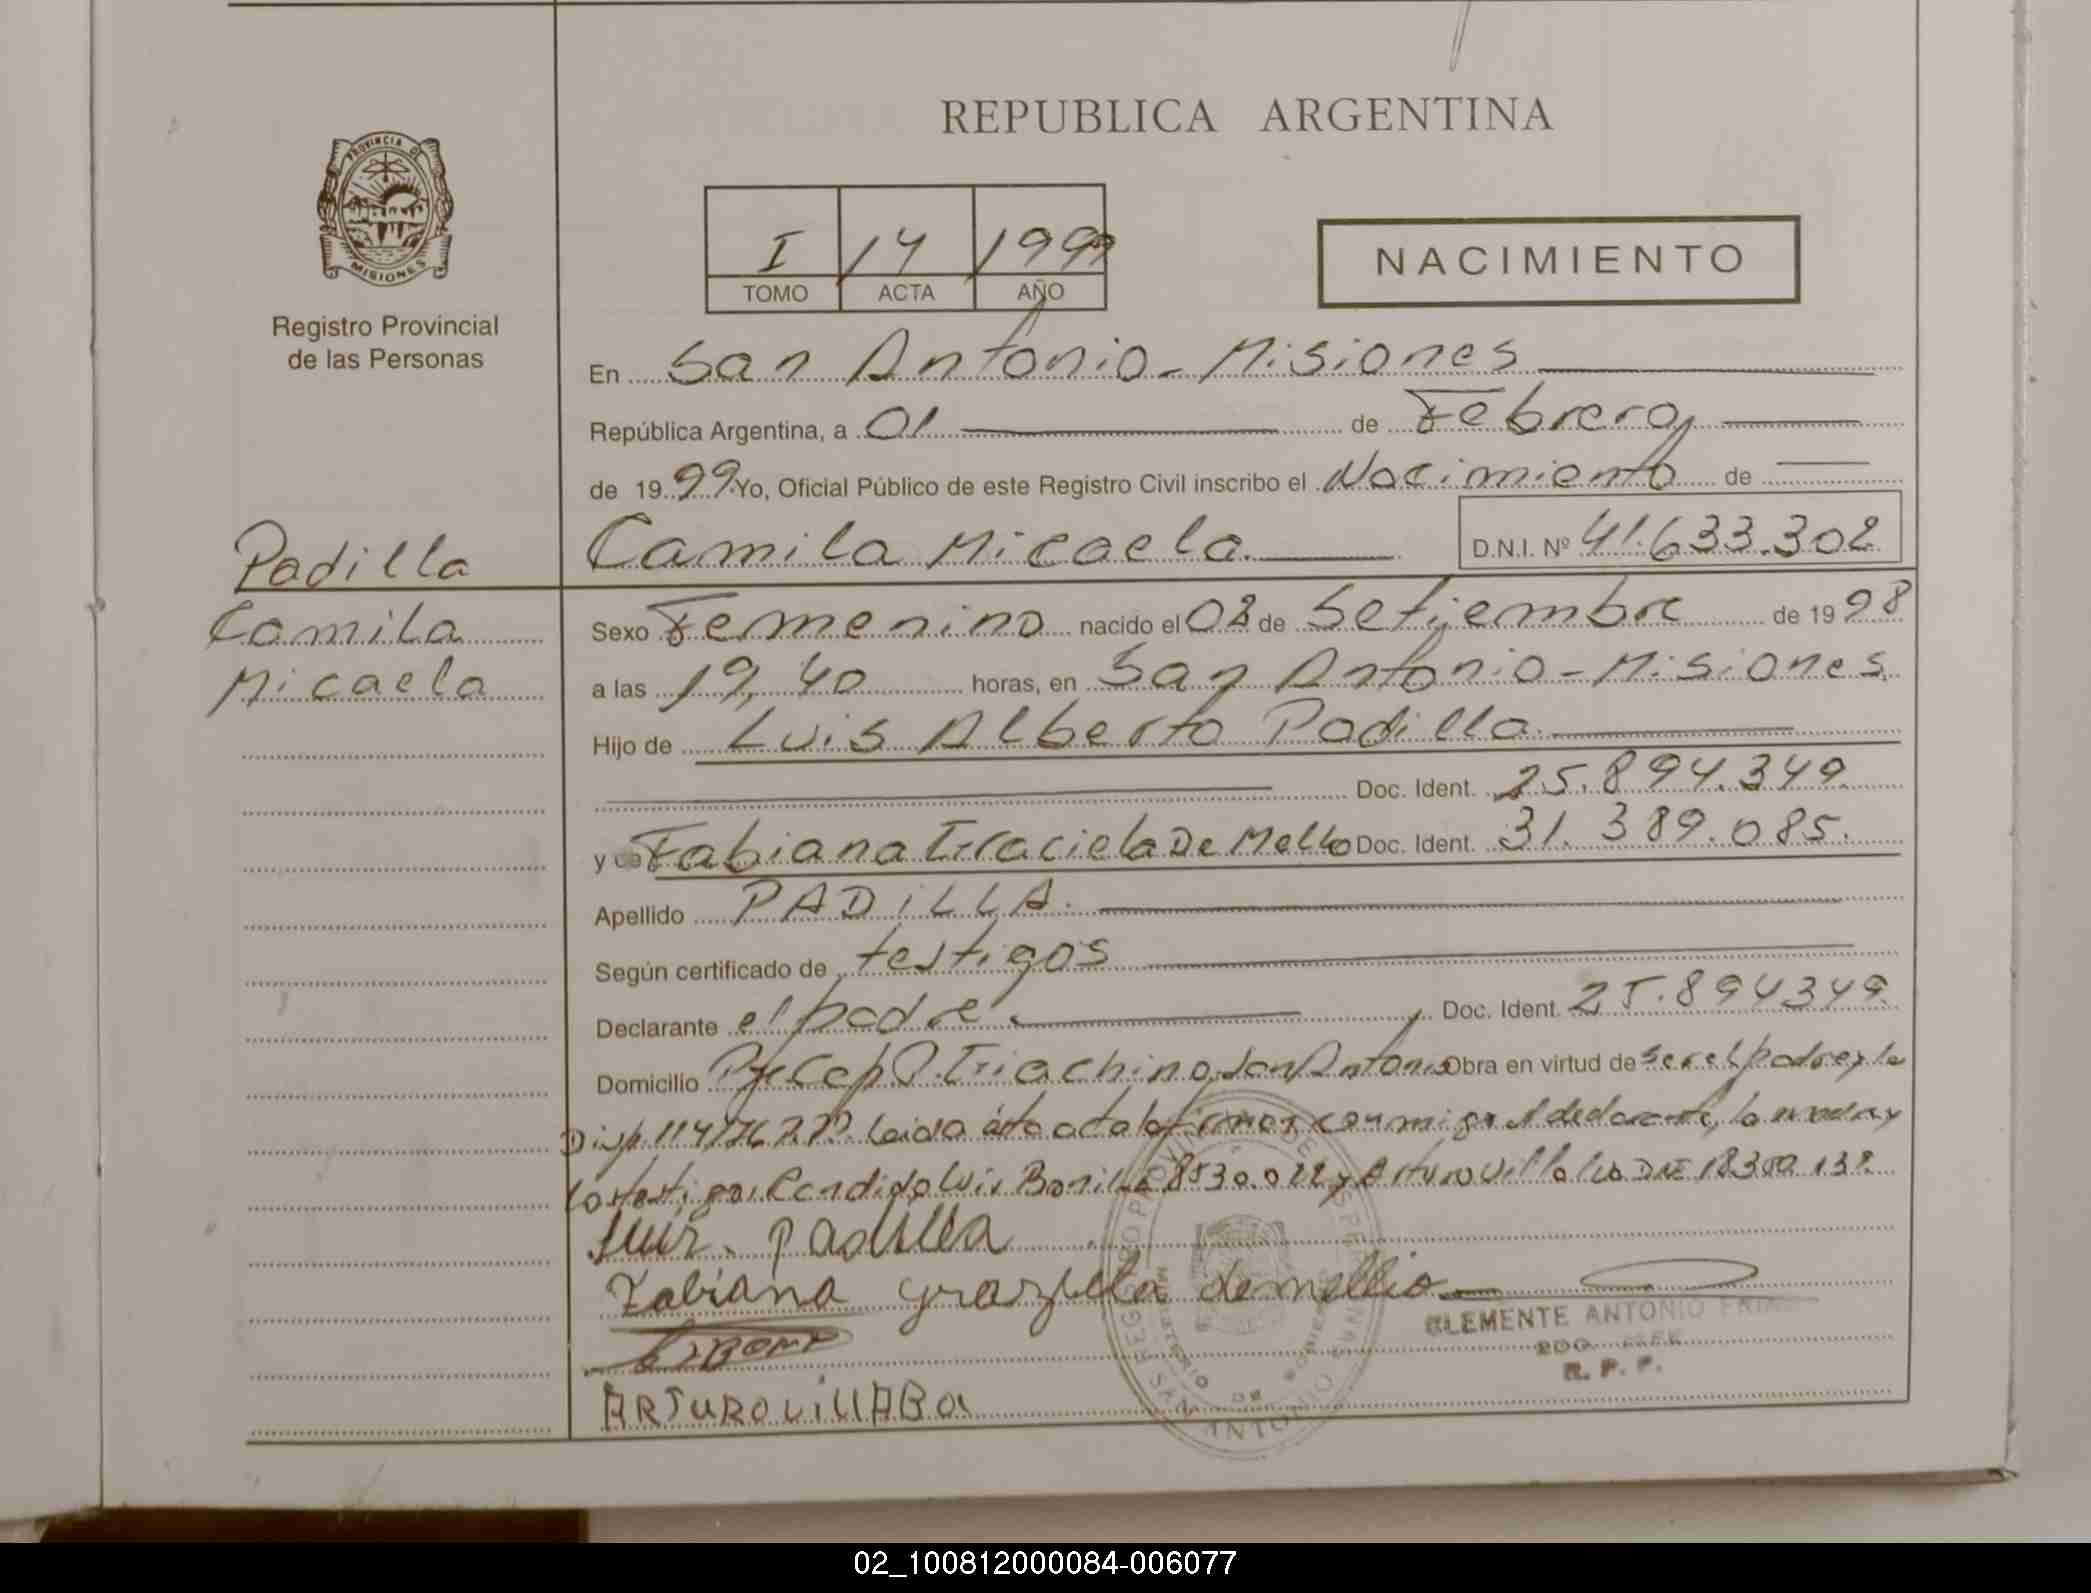 REPUBLICA ARGENTINA
PROVINCIA DE
MISIONES
Registro Provincial
de las Personas
I 14 1999
TOMO ACTA AÑO
NACIMIENTO
En San Antonio - Misiones
República Argentina, a 01 de Febrero,
de 1999. Yo, Oficial Público de este Registro Civil inscribo el Nacimiento de
Camila Micaela. D.N.I. Nº 41.633.302
Padilla
Camila
Micaela
Sexo Femenino nacido el 08 de Setiembre de 1998
a las 19,40 horas, en San Antonio - Misiones.
Hijo de Luis Alberto Padilla.
Doc. Ident. 25.894.349.
y de Fabiana Graciela De Mello Doc. Ident. 31.389.085.
Apellido PADILLA.
Según certificado de testigos
Declarante el padre. Doc. Ident. 25.894349.
Domicilio San Antonio Obra en virtud de ser el padre y la
Leida ésta acta la firman conmigo el declarante, la madre y
los testigos Candido Luis 8530.022 y Arturo Villalba DNI 18.300.132.
Luis. Padilla
Fabiana graziela de mellio
CLEMENTE ANTONIO
R. P. P.
ARTURO VILLABA
SAN ANTONIO
02_100812000084-006077